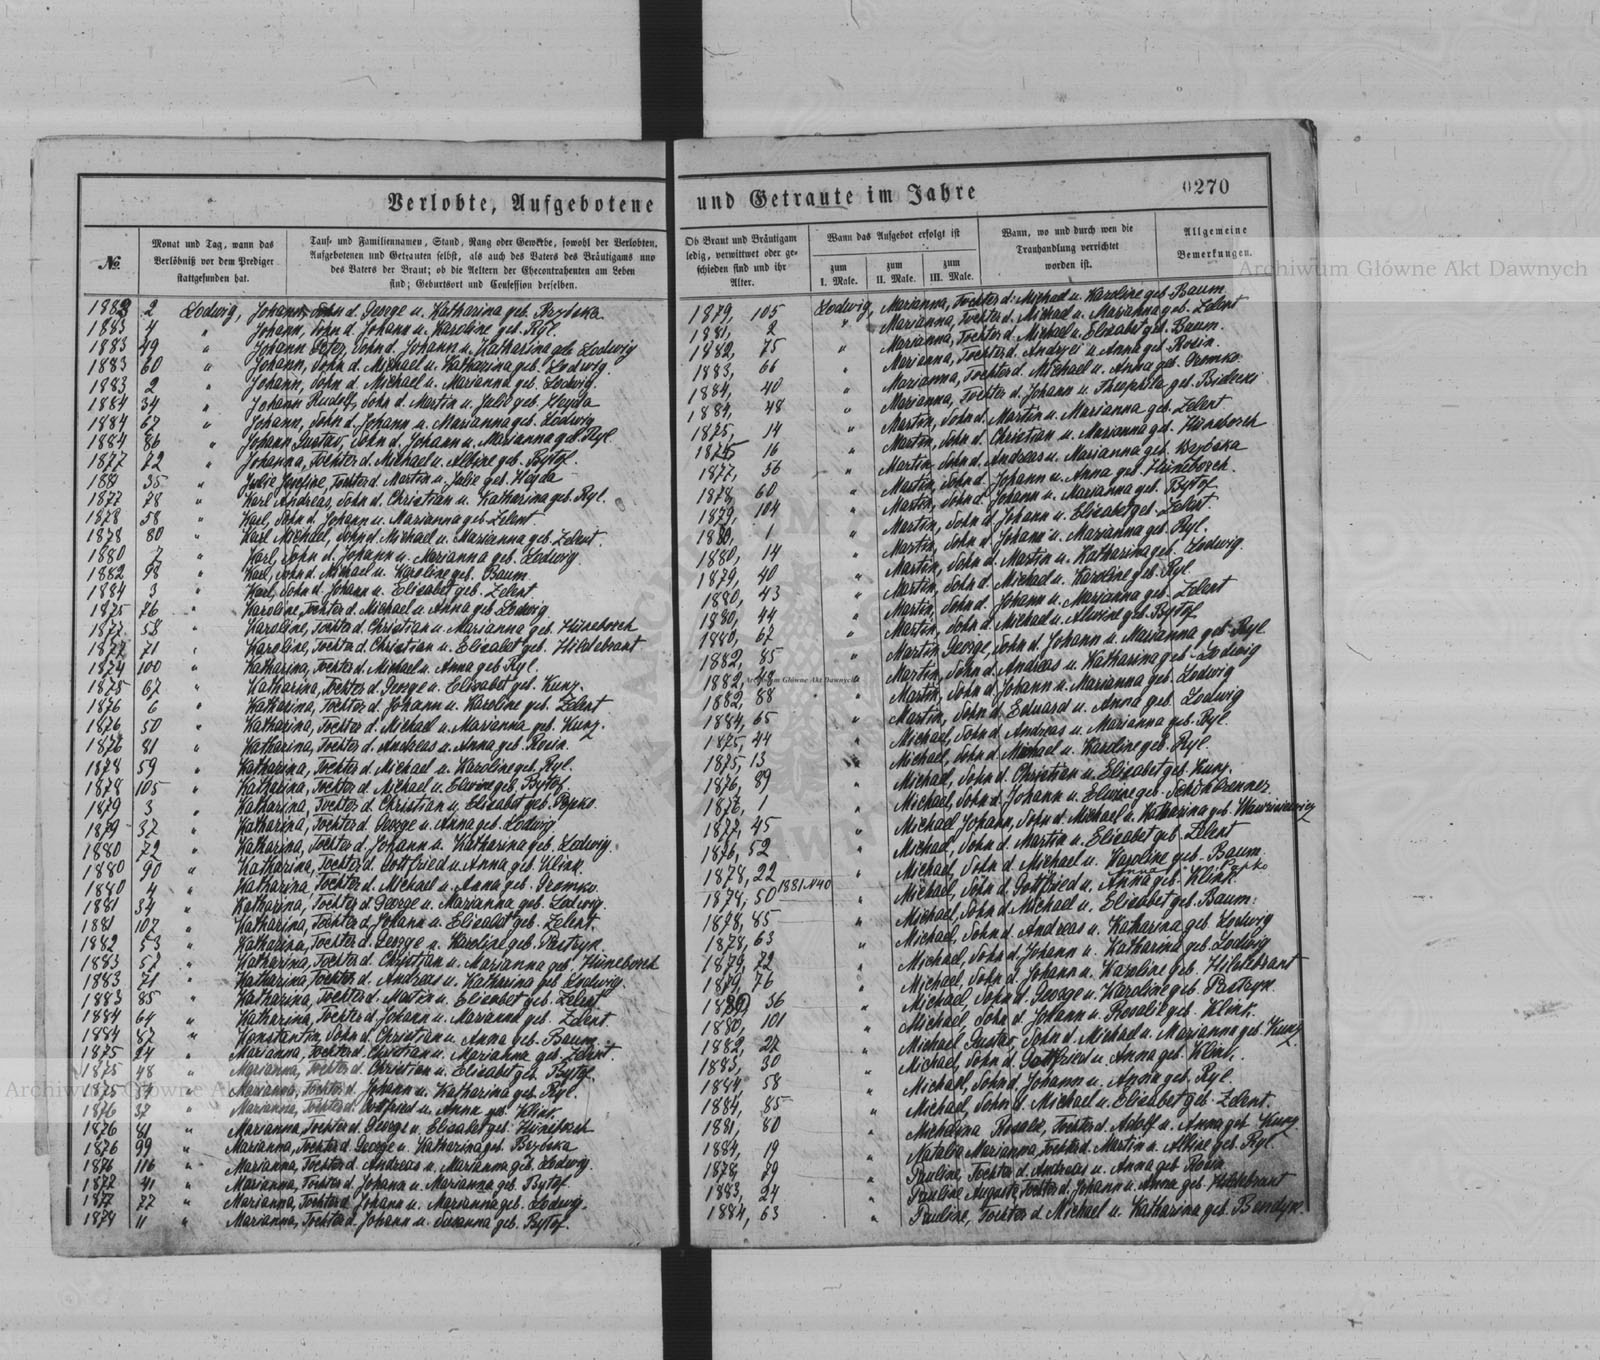 Verlobte, Aufgebotene
№
Monat und Tag, wann das
Verlöbniß vor dem Prediger
stattgefunden hat.
Tauf- und Familiennamen, Stand, Rang oder Gewerbe, sowohl der Verlobten,
Aufgebotenen und Getrauten selbst, als auch des Vaters des Bräutigams und
des Vaters der Braut; ob die Aeltern der Ehecontrahenten am Leben
sind; Geburtsort und Confession derselben.
1883 2 Lodwig, Johann, Sohn d. George u. Katharina geb. Brzoska
1883 4 " Johann, Sohn d. Johann u. Karoline geb. Ryl.
1883 49 " Johann Peter, Sohn d. Johann u. Katharina geb. Lodwig
1883 60 " Johann, Sohn d. Michael u. Katharina geb. Lodwig.
1883 2 " Johann, Sohn d. Michael u. Marianna geb. Lodwig.
1884 34 " Johann Rudolf, Sohn d. Martin u. Julie geb. Heyda
1884 67 " Johann, Sohn d. Johann u. Marianna geb. Lodwig
1884 86 " Johann Gustav, Sohn d. Johann u. Marianna geb. Ryl.
1877 72 " Johanna, Tochter d. Michael u. Albine geb. Bytof.
35 " Julie Josefine, Tochter d. Martin u. Julie geb. Heyda
1877 78 " Karl Andreas, Sohn d. Christian u. Katharina geb. Ryl.
1878 58 " Karl, Sohn d. Johann u. Marianna geb. Zelent.
1878 80 " Karl Michael, Sohn d. Michael u. Marianna geb. Zelent.
1880 7 " Karl, Sohn d. Johann u. Marianna geb. Lodwig.
1882 98 " Karl, Sohn d. Michael u. Karoline geb. Baum.
1884 3 " Karl, Sohn d. Johann u. Elisabet geb. Zelent.
1875 76 " Karoline, Tochter d. Michael u. Anna geb. Lodwig
1877 58 " Karoline, Tochter d. Christian u. Marianna geb. Hüneborch
1877 71 " Karoline, Tochter d. Christian u. Elisabet geb. Hildebrant
1874 100 " Katharina, Tochter d. Michael u. Anna geb. Ryl.
1875 67 " Katharina, Tochter d. George u. Elisabet geb. Kunz.
1876 6 " Katharina, Tochter d. Johann u. Karoline geb. Zelent
1876 50 " Katharina, Tochter d. Michael u. Marianna geb. Kunz.
1876 81 " Katharina, Tochter d. Andreas u. Anna geb. Rosin.
1878 59 " Katharina, Tochter d. Michael u. Karoline geb. Ryl.
1878 105 " Katharina, Tochter d. Michael u. Elwine geb. Bytof
1879 3 " Katharina, Tochter d. Christian u. Elisabet geb. Popko.
1879 37 " Katharina, Tochter d. George u. Anna geb. Lodwig
1880 72 " Katharina, Tochter d. Johann u. Katharina geb. Lodwig.
1880 90 " Katharina, Tochter d. Gottfried u. Anna geb. Klink.
1880 4 " Katharina, Tochter d. Michael u. Anna geb. Gromko.
1881 34 " Katharina, Tochter d. George u. Marianna geb. Lodwig.
1881 107 " Katharina, Tochter d. Johann u. Elisabet geb. Zelent.
1882 53 " Katharina, Tochter d. George u. Karoline geb. Pastryk.
1883 57 " Katharina, Tochter d. Christian u. Marianna geb. Hüneborch
1883 71 " Katharina, Tochter d. Andreas u. Katharina geb. Lodwig.
1883 85 " Katharina, Tochter d. Martin u. Elisabet geb. Zelent
1884 64 " Katharina, Tochter d. Johann u. Marianna geb. Zelent.
1884 87 " Konstantin, Sohn d. Christian u. Anna geb. Baum.
1875 24 " Marianna, Tochter d. Christian u. Marianna geb. Zelent.
1875 48 " Marianna, Tochter d. Christian u. Elisabet geb. Bytof.
1875 54 " Marianna, Tochter d. Johann u. Katharina geb. Ryl.
1876 37 " Marianna, Tochter d. Gottfried u. Anna geb. Klink.
1876 81 " Marianna, Tochter d. George u. Elisabet geb. Hüneborch
1876 99 " Marianna, Tochter d. George u. Katharina geb. Brzoska
1876 116 " Marianna, Tochter d. Andreas u. Marianna geb. Lodwig.
1877 41 " Marianna, Tochter d. Johann u. Marianna geb. Bytof.
1877 77 " Marianna, Tochter d. Johann u. Marianna geb. Lodwig.
1874 11 " Marianna, Tochter d. Johann u. Susanna geb. Bytof.
und Getraute im Jahre
0270
Ob Braut und Bräutigam
ledig, verwittwet oder ge-
schieden sind und ihr
Alter.
Wann das Aufgebot erfolgt ist
zum
I. Male.
zum
II. Male.
zum
III. Male.
Wann, wo und durch wen die
Trauhandlung verrichtet
worden ist.
Allgemeine
Bemerkungen.
1879, 105 Lodwig, Marianna, Tochter d. Michael u. Karoline geb. Baum
1881, 2 " Marianna, Tochter d. Michael u. Marianna geb. Zelent
1882, 75 " Marianna, Tochter d. Michael u. Elisabet geb. Baum.
1883, 66 " Marianna, Tochter d. Andrzei u. Anna geb. Rosin.
1884, 40 " Marianna, Tochter d. Michael u. Anna geb. Gromko.
1884, 48 " Marianna, Tochter d. Johann u. Theophila geb.
1875, 14 " Martin, Sohn d. Martin u. Marianna geb. Zelent
1875 16 " Martin, Sohn d. Christian u. Marianna geb. Hüneborch
1877, 56 " Martin, Sohn d. Andreas u. Marianna geb. Brzoska
1878, 60 " Martin, Sohn d. Johann u. Anna geb. Hüneborch.
1879, 104 " Martin, Sohn d. Johann u. Marianna geb. Bytof
1 " Martin, Sohn d. Johann u. Elisabet geb. Zelent.
1880, 14 " Martin, Sohn d. Johann u. Marianna geb. Ryl.
1879, 40 " Martin, Sohn d. Martin u. Katharina geb. Lodwig.
1880, 43 " Martin, Sohn d. Michael u. Karoline geb. Ryl
1880, 44 " Martin, Sohn d. Johann u. Marianna geb. Zelent
1880, 67 " Martin, Sohn d. Michael u. Alwine geb. Bytof
1882, 85 " Martin George, Sohn d. Johann u. Marianna geb. Ryl
1882, " Martin, Sohn d. Andreas u. Katharina geb. Lodwig
1882, 88 " Martin, Sohn d. Johann u. Marianna geb. Lodwig
1884, 65 " Martin, Sohn d. Eduard u. Anna geb. Lodwig
1875, 44 " Michael, Sohn d. Andreas u. Marianna geb. Ryl.
1875, 13 " Michael, Sohn d. Michael u. Karoline geb. Ryl.
1876, 89 " Michael, Sohn d. Christian u. Elisabet geb. Kunz.
1876, 1 " Michael, Sohn d. Johann u. Elwine geb. Schönbrenner.
1877, 45 " Michael Johann, Sohn d. Michael u. Katharina geb.
1876, 52 " Michael, Sohn d. Martin u. Elisabet geb. Zelent
1878, 22 " Michael, Sohn d. Michael u. Karoline geb. Baum.
1878, 50 1881. N 40 " Michael, Sohn d. Gottfried u. Anna geb. Klink. Popko
1878, 85 " Michael, Sohn d. Michael u. Elisabet geb. Baum.
1878, 63 " Michael, Sohn d. Andreas u. Katharina geb. Lodwig
1879, 72 " Michael, Sohn d. Johann u. Katharina geb. Lodwig
1879, 76 " Michael, Sohn d. Johann u. Karoline geb. Hildebrant
36 " Michael, Sohn d. George u. Karoline geb. Pastryk.
1880, 101 " Michael, Sohn d. Johann u. Rosalie geb. Klink.
1882, 27 " Michael Gustav, Sohn d. Michael u. Marianna geb. Kunz
1883, 30 " Michael, Sohn d. Gottfried u. Anna geb. Klink.
1884, 58 " Michael, Sohn d. Johann u. geb. Ryl.
1884, 85 " Michael, Sohn d. Michael u. Elisabet geb. Zelent.
1881, 80 " Michalina Rosalie, Tochter d. Adolf u. Anna geb. Kunz
1884, 19 " Natalia Marianna, Tochter d. Martin u. Albine geb. Ryl
1878, 79 " Pauline, Tochter d. Andreas u. Anna geb. Rosin
1883, 24 " Pauline Auguste, Tochter d. Johann u. Anna geb. Hildebrant
1884, 63 " Pauline, Tochter d. Michael u. Katharina geb. Bondyk.
Archiwum Główne Akt Dawnych
Archiwum Główne Akt Dawnych
Archiwum Główne Akt Dawnych